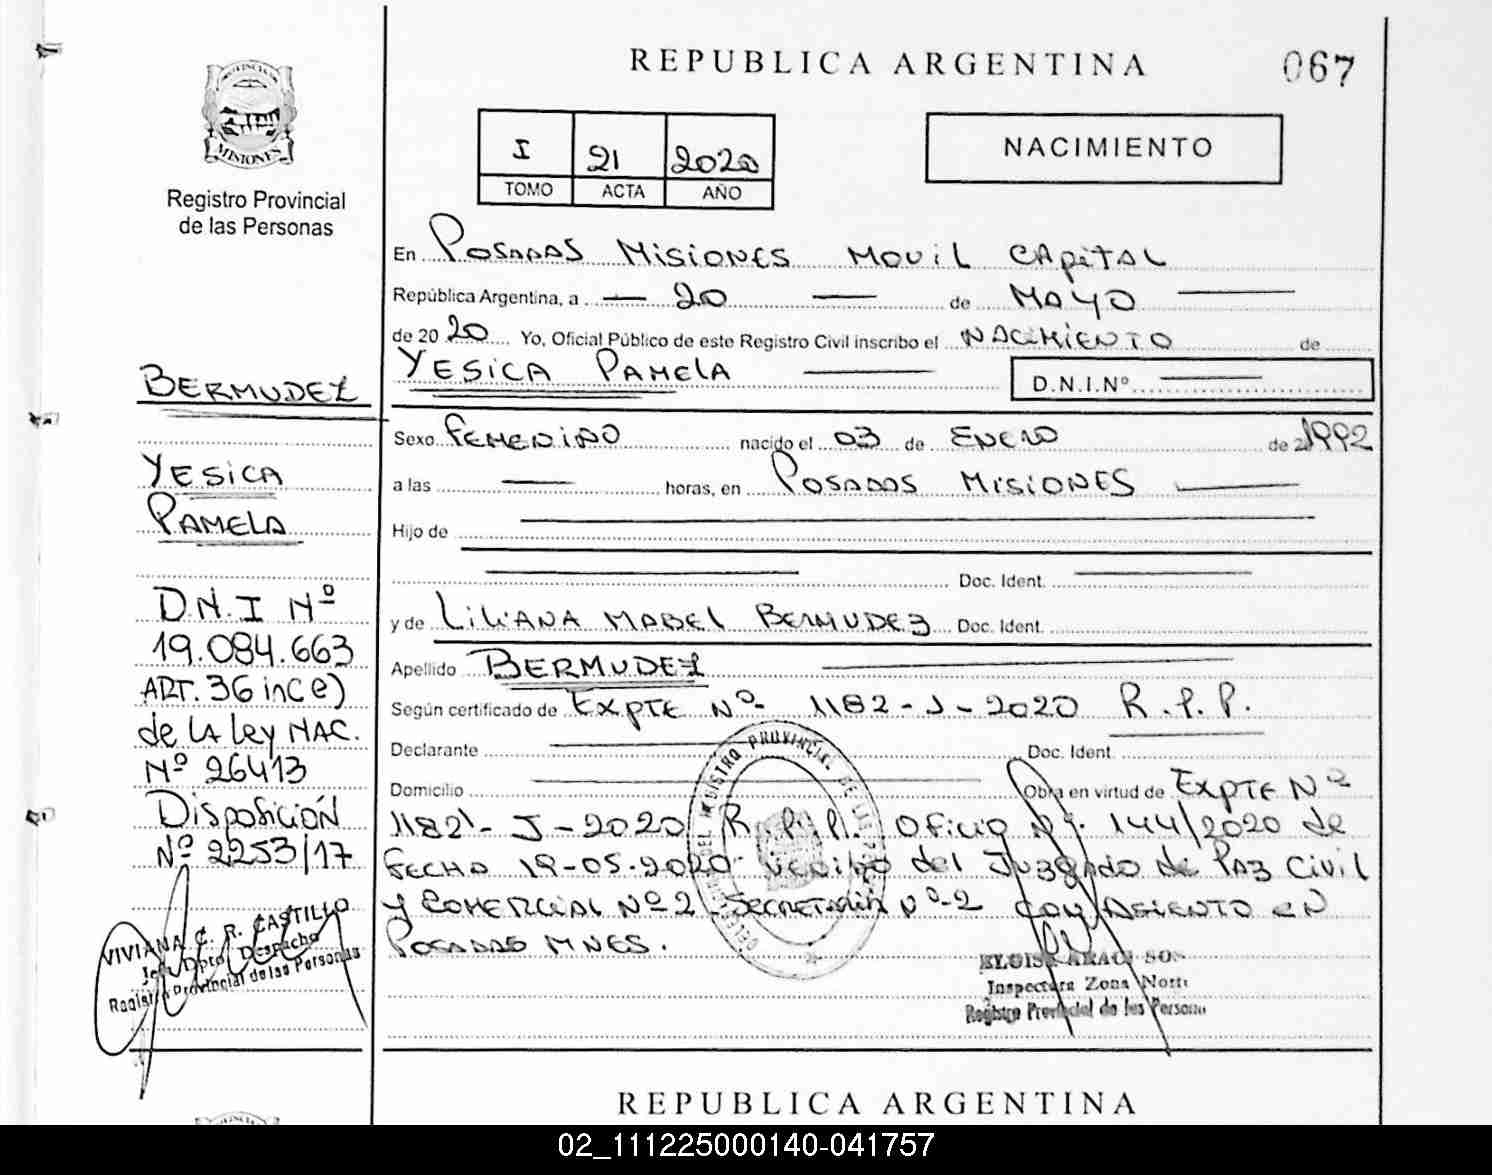 REPUBLICA ARGENTINA
067
PROVINCIA DE
MISIONES
Registro Provincial
de las Personas
I 21 2020
TOMO ACTA AÑO
NACIMIENTO
En POSADAS MISIONES MOVIL CAPITAL
República Argentina, a 20 de MAYO
de 20 20 Yo, Oficial Público de este Registro Civil inscribo el NACIMIENTO de
YESICA PAMELA
D.N.I.Nº
Sexo FEMENINO nacido el 03 de ENERO de 1992
a las horas, en POSADAS MISIONES
Hijo de
Doc. Ident.
y de LILIANA MABEL BERMUDEZ Doc. Ident.
Apellido BERMUDEZ
Según certificado de EXPTE Nº 1182-J-2020 R.P.P.
Declarante Doc. Ident.
Domicilio Obra en virtud de EXPTE Nº
1182-J-2020 R.P.P. Oficio Nº. 144/2020 de
FECHA 19-05-2020 del Juzgado de Paz Civil
y COMERCIAL Nº 2 SECRETARIA Nº 2 CON ASIENTO EN
POSADAS MNES.
Inspectora Zona Norte
BERMUDEZ
YESICA
PAMELA
D.N.I Nº
19.084.663
ART. 36 inc e)
de LA Ley NAC.
Nº 26413
Disposición
Nº 2253/17
VIVIANA C. R. CASTILLO
Jefa Dpto. Despacho
Registro Provincial de las Personas
REPUBLICA ARGENTINA
02_111225000140-041757